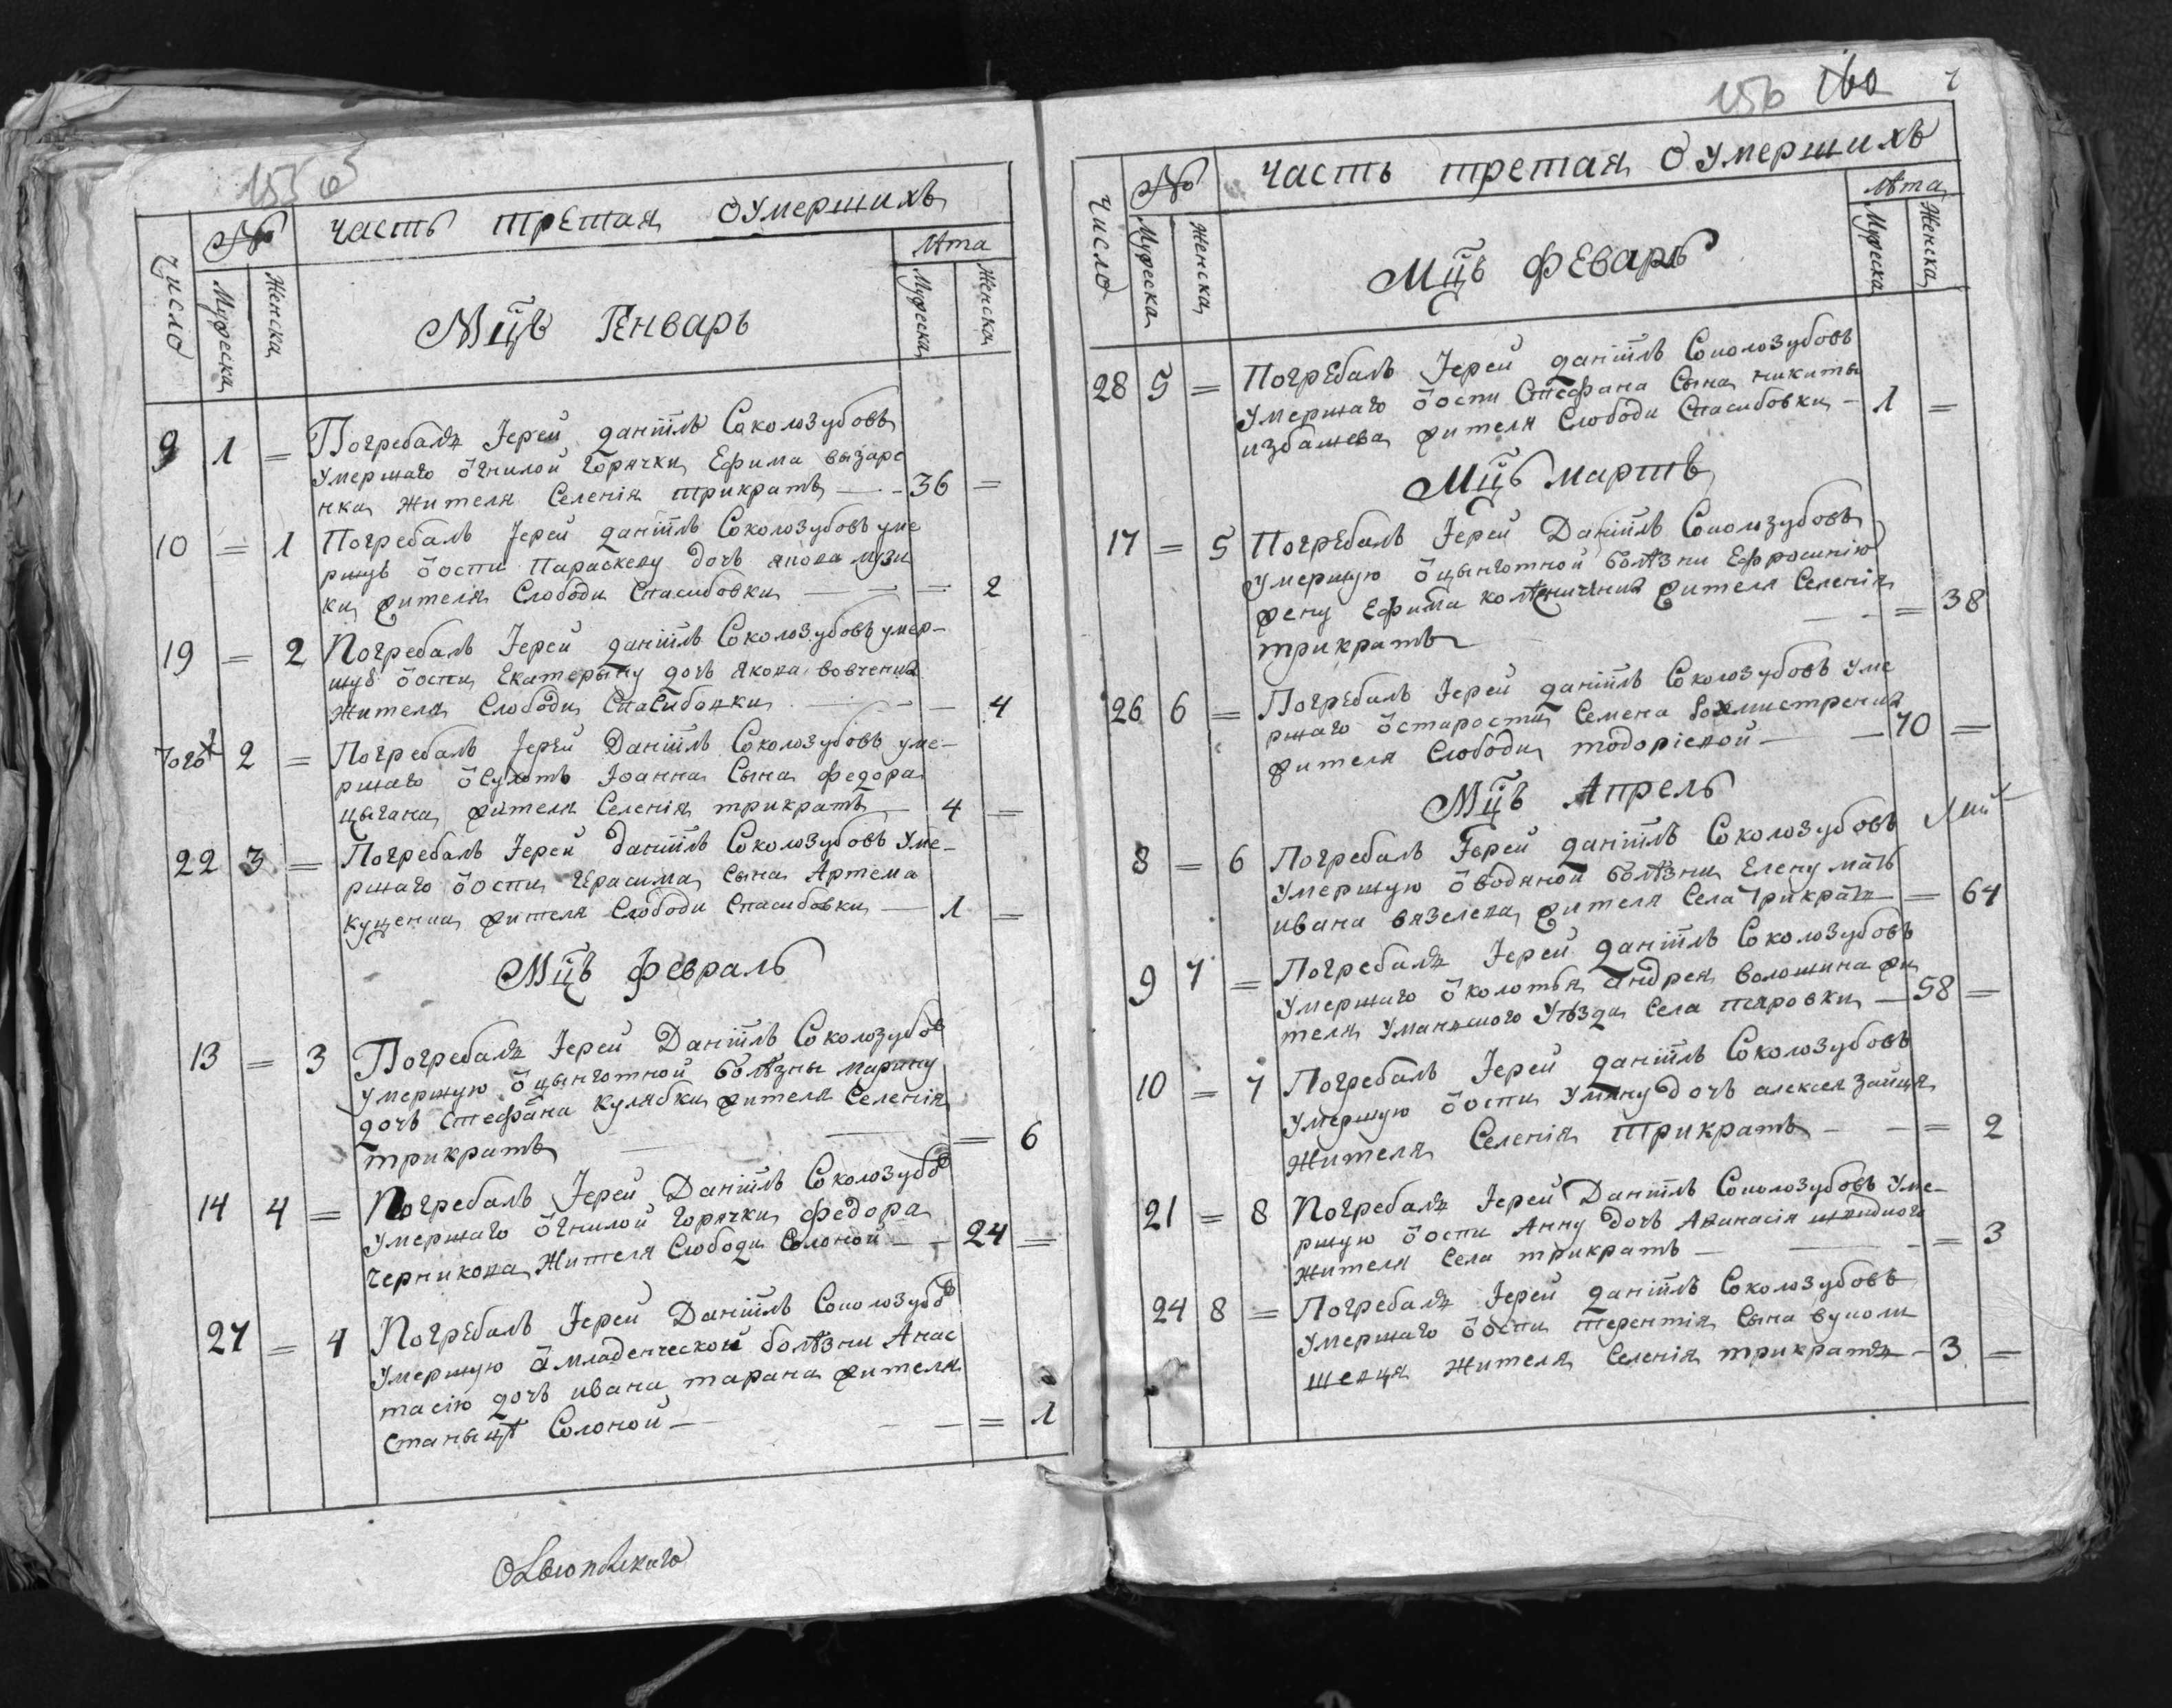 155
№ Часть третая о умершихъ
Число Мужеска Женска Лѣта Мужеска Женска
Мцъ Генварь
9 1 = Погребалъ Іерей Даніилъ Соколозубовъ
умершаго ѿ гнилой горячки Ефима вызаре
нка жителя Селенія трикратъ — 36 =
10 = 1 Погребалъ Іерей Даніилъ Соколозубовъ уме
ршую ѿ оспи Параскеву дочь якова музи
ки жителя Слободи Спасибовки — — = 2
19 = 2 Погребалъ Іерей Даніилъ Соколозубовъ умер-
шую ѿ оспи Екатерыну дочь Якова вовченка
жителя Слободи Спасибовки — = 4
Тогож 2 = Погребалъ Іерей Даніилъ Соколозубовъ уме-
ршаго ѿ сухотъ Іоанна Сына федора
цыгана жителя Селенія трикратъ — 4 =
22 3 = Погребалъ Іерей Даніилъ Соколозубовъ уме-
ршаго ѿ оспи Герасима Сына Артема
куценка жителя Слободи Спасибовки — 1 =
Мцъ февраль
13 = 3 Погребалъ Іерей Даніилъ Соколозубовъ
умершую ѿ цынготной болѣзны марину
дочь Стефана кулябки жителя Селенія
трикратъ — = 6
14 4 = Погребалъ Іерей Даніилъ Соколозубовъ
умершаго ѿ гнилой горячки федора
черникова жителя Слободи Солоной — 24 =
27 = 4 Погребалъ Іерей Даніилъ Соколозубовъ
умершую ѿ младенческой болѣзни Анас
тасію дочь ивана тарана жителя
станыцѣ Солоной — = 1
156 160
№ Часть третая о умершихъ
Число Мужеска Женска Лѣта Мужеска Женска
Мцъ феварь
28 5 = Погребалъ Іерей Даніилъ Соколозубовъ
умершаго ѿ оспи Стефана Сына никиты
избашева жителя Слободи Спасибовки — 1 =
Мцъ мартъ
17 = 5 Погребалъ Іерей Даніилъ Соколозубовъ
умершую ѿ цынготной болѣзни Ефросинію
жену Ефима жителя Селенія
трикратъ — = 38
26 6 = Погребалъ Іерей Даніилъ Соколозубовъ уме
ршаго ѿ старости Семена вохмистренка
жителя Слободи — 70 =
Мцъ Апрель
8 = 6 Погребалъ Іерей Даніилъ Соколозубовъ
умершую ѿ водяной болѣзни Елену мать
ивана вязелева жителя Села Трикратъ = 64
9 7 = Погребалъ Іерей Даніилъ Соколозубовъ
умершаго ѿ колотья Андрея волошина жи
теля Уманского Уѣзда Села — 58 =
10 = 7 Погребалъ Іерей Даніилъ Соколозубовъ
умершую ѿ оспи дочь алексея зайця
жителя Селенія Трикратъ — = 2
21 = 8 Погребалъ Іерей Даніилъ Соколозубовъ уме-
ршую ѿ оспи Анну дочь Афанасія
жителя Села трикратъ — = 3
24 8 = Погребалъ Іерей Даніилъ Соколозубовъ
умершаго ѿ оспи терентія Сына
жителя Селенія трикратъ — 3 =